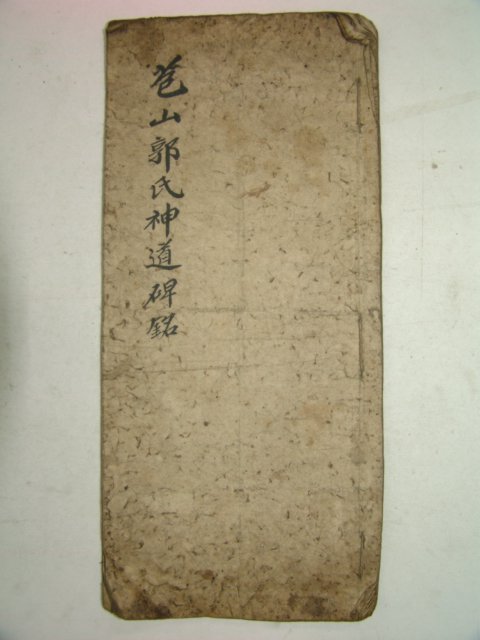 苞山郭氏神道碑銘